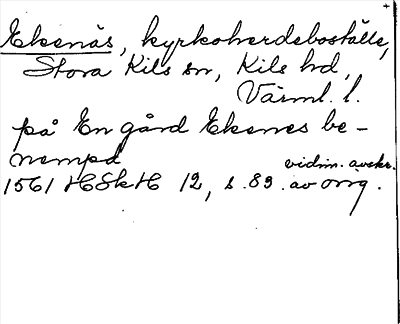 +
Ekenäs, kyrkoherdeboställe,
Stora Kils sn, Kils hd,
Värml. l.
på En gård Ekenes be-
nempd
vidim. avskr.
1561 HSkH 12, s. 83. av orig.